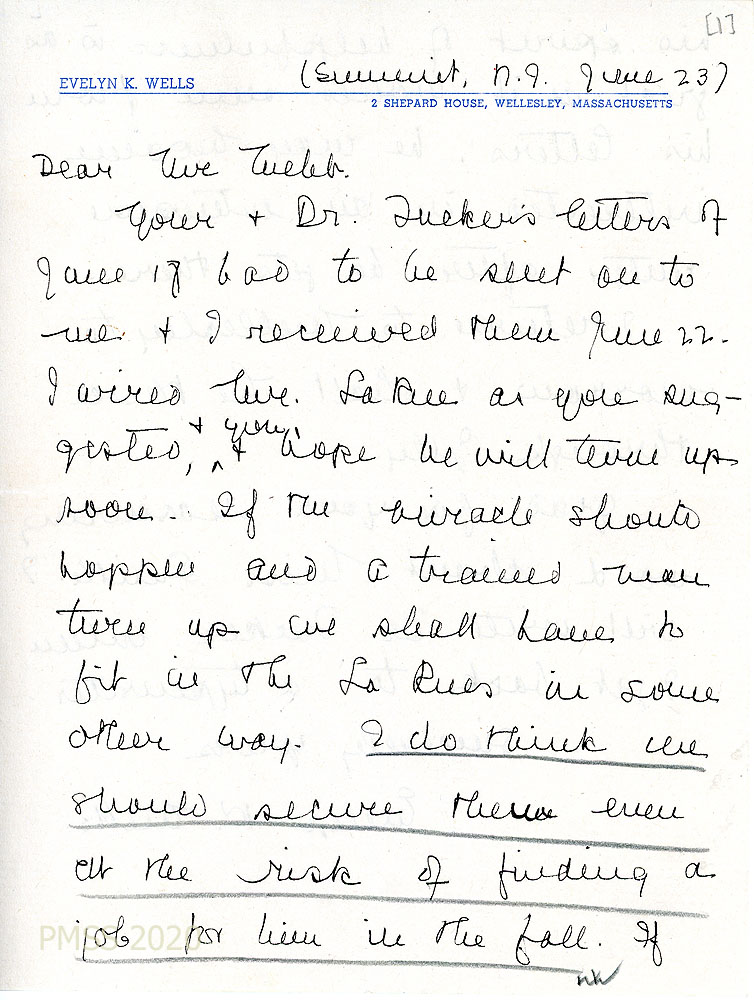 [1]
(Summit, N.J. June 23)
EVELYN K. WELLS
2 SHEPARD HOUSE, WELLESLEY, MASSACHUSETTS
Dear Mr. Webb.
Your + Dr. Tucker's letters of
June 17 had to be sent on to
me. + I received them June 22.
I wired Mr. La Rue as you sug-
gested, + hope he will turn up
soon. If the miracle should
happen and a trained man
turn up we shall have to
fit in the La Rues in some
other way. I do think we
should secure them even
at the risk of finding a
job for him in the fall. If
PMSS 2020